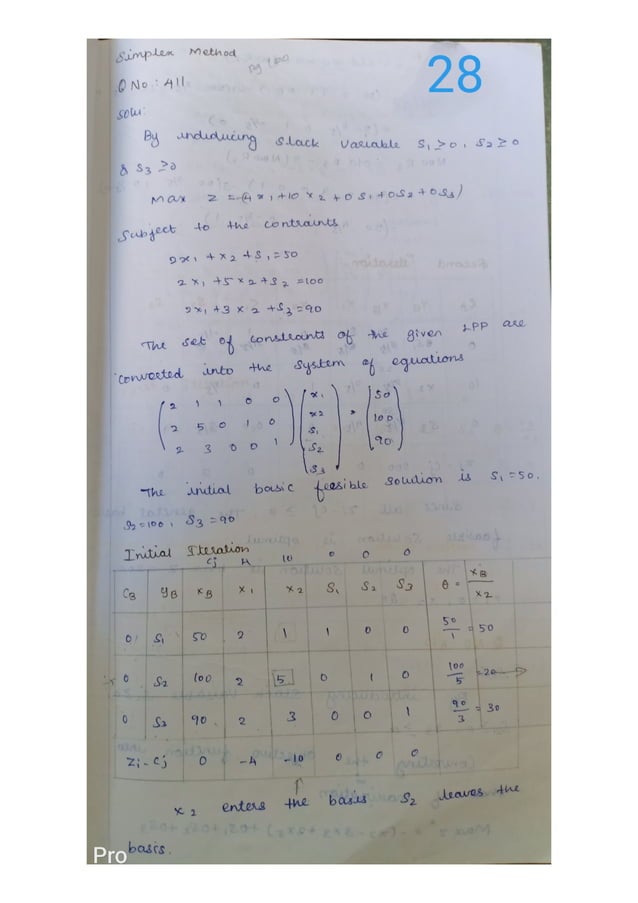 Simplex Method
28
Q No : 411
Solu:
By induducing slack variable S1 ≥ 0, S2 ≥ 0
& S3 ≥ 0
Max Z = (4x1 + 10x2 + 0S1 + 0S2 + 0S3)
Subject to the contraints
2x1 + x2 + S1 = 50
2x1 + 5x2 + S2 = 100
2x1 + 3x2 + S3 = 90
The set of constraints of the given LPP are
converted into the system of equations
( 2 1 1 0 0 ) ( x1 ) = ( 50 )
2 5 0 1 0 x2 100
2 3 0 0 1 S1 90
S2
S3
The initial basic feesible solution is S1 = 50.
S2 = 100, S3 = 90
Initial Iteration
Cj 4 10 0 0 0
CB YB XB X1 X2 S1 S2 S3 θ = XB/X2
0 S1 50 2 1 1 0 0 50/1 = 50
0 S2 100 2 5 0 1 0 100/5 = 20 →
0 S3 90 2 3 0 0 1 90/3 = 30
Zi - Cj 0 -4 -10 0 0 0
↑
X2 enters the basis S2 leaves the
basis.
Pro